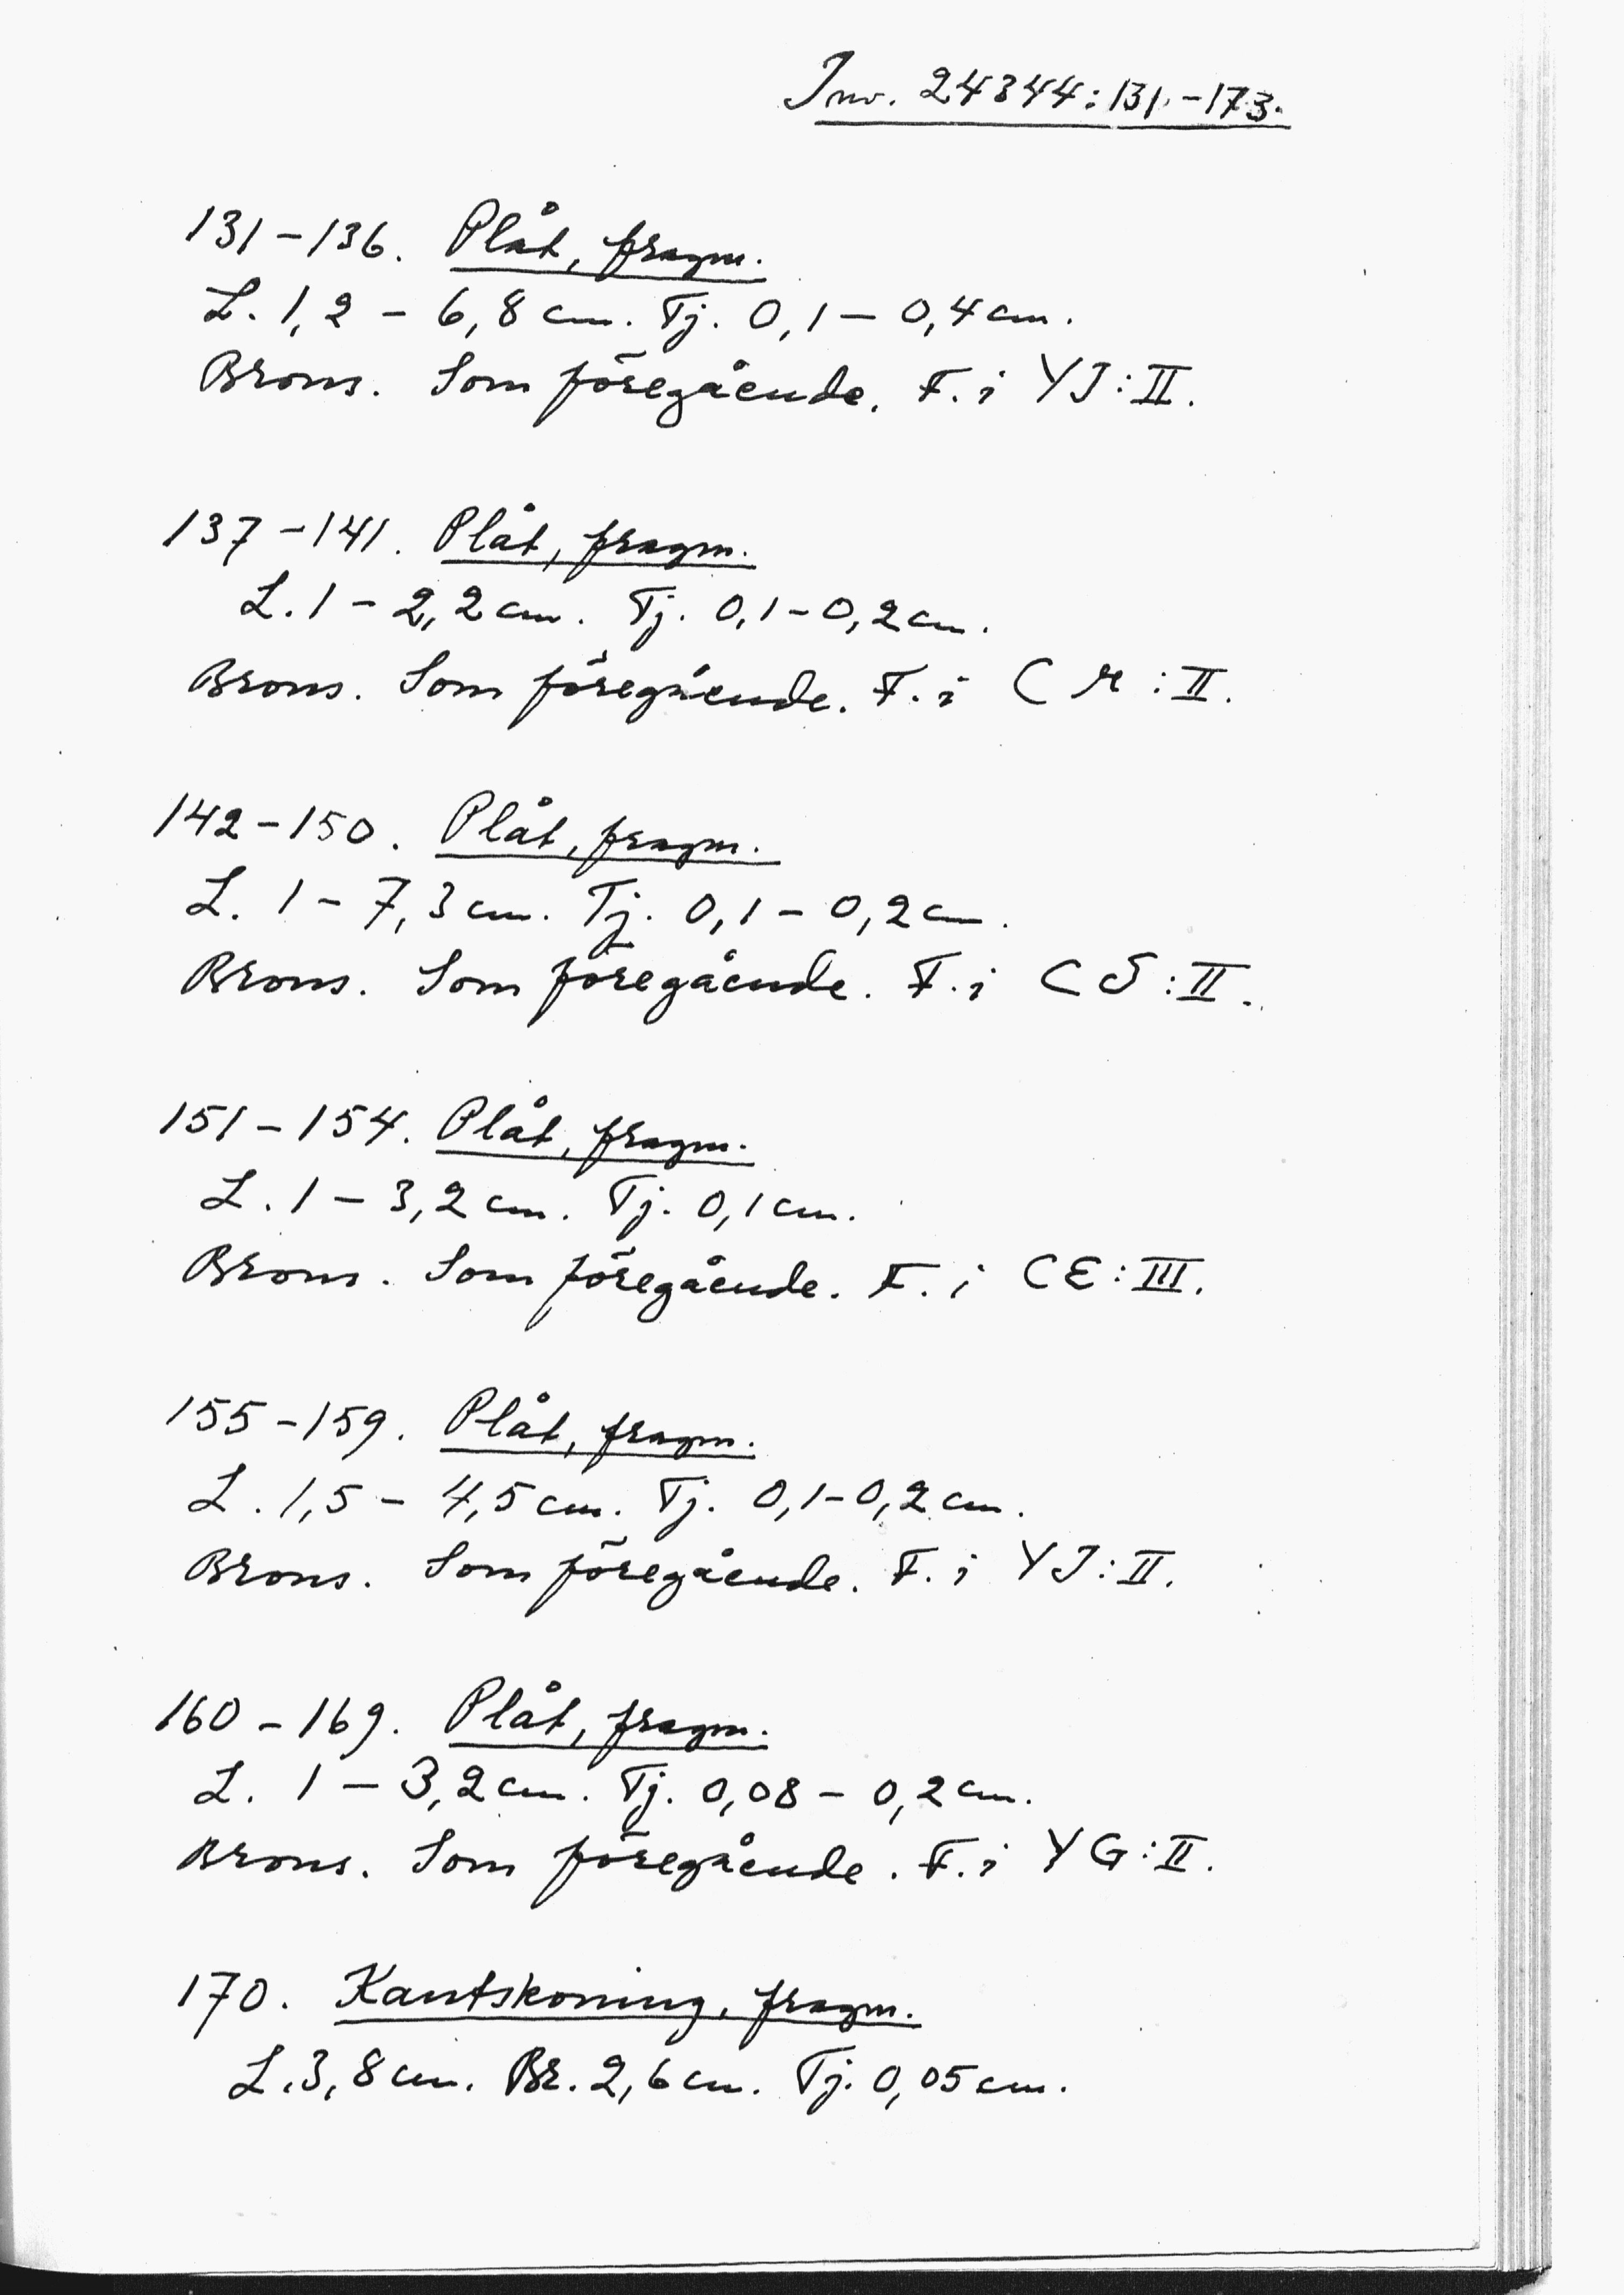 Inv. 24344:131-173.
131-136. Plåt, fragm.
L. 1,2 - 6,8 cm. Tj. 0,1 - 0,4 cm.
Brons. Som föregående. F. i YJ:II.
137-141. Plåt, fragm.
L. 1 - 2,2 cm. Tj. 0,1-0,2 cm.
Brons. Som föregående. F. i CM:II.
142-150. Plåt, fragm.
L. 1 - 7,3 cm. Tj. 0,1 - 0,2 cm.
Brons. Som föregående. F. i CS:II.
151-154. Plåt, fragm.
L. 1 - 3,2 cm. Tj. 0,1 cm.
Brons. Som föregående. F. i CE:III.
155-159. Plåt, fragm.
L. 1,5 - 4,5 cm. Tj. 0,1-0,2 cm.
Brons. Som föregående. F. i YJ:II.
160-169. Plåt, fragm.
L. 1 - 3,2 cm. Tj. 0,08 - 0,2 cm.
Brons. Som föregående. F. i YG:II.
170. Kantskoning, fragm.
L. 3,8 cm. Br. 2,6 cm. Tj. 0,05 cm.